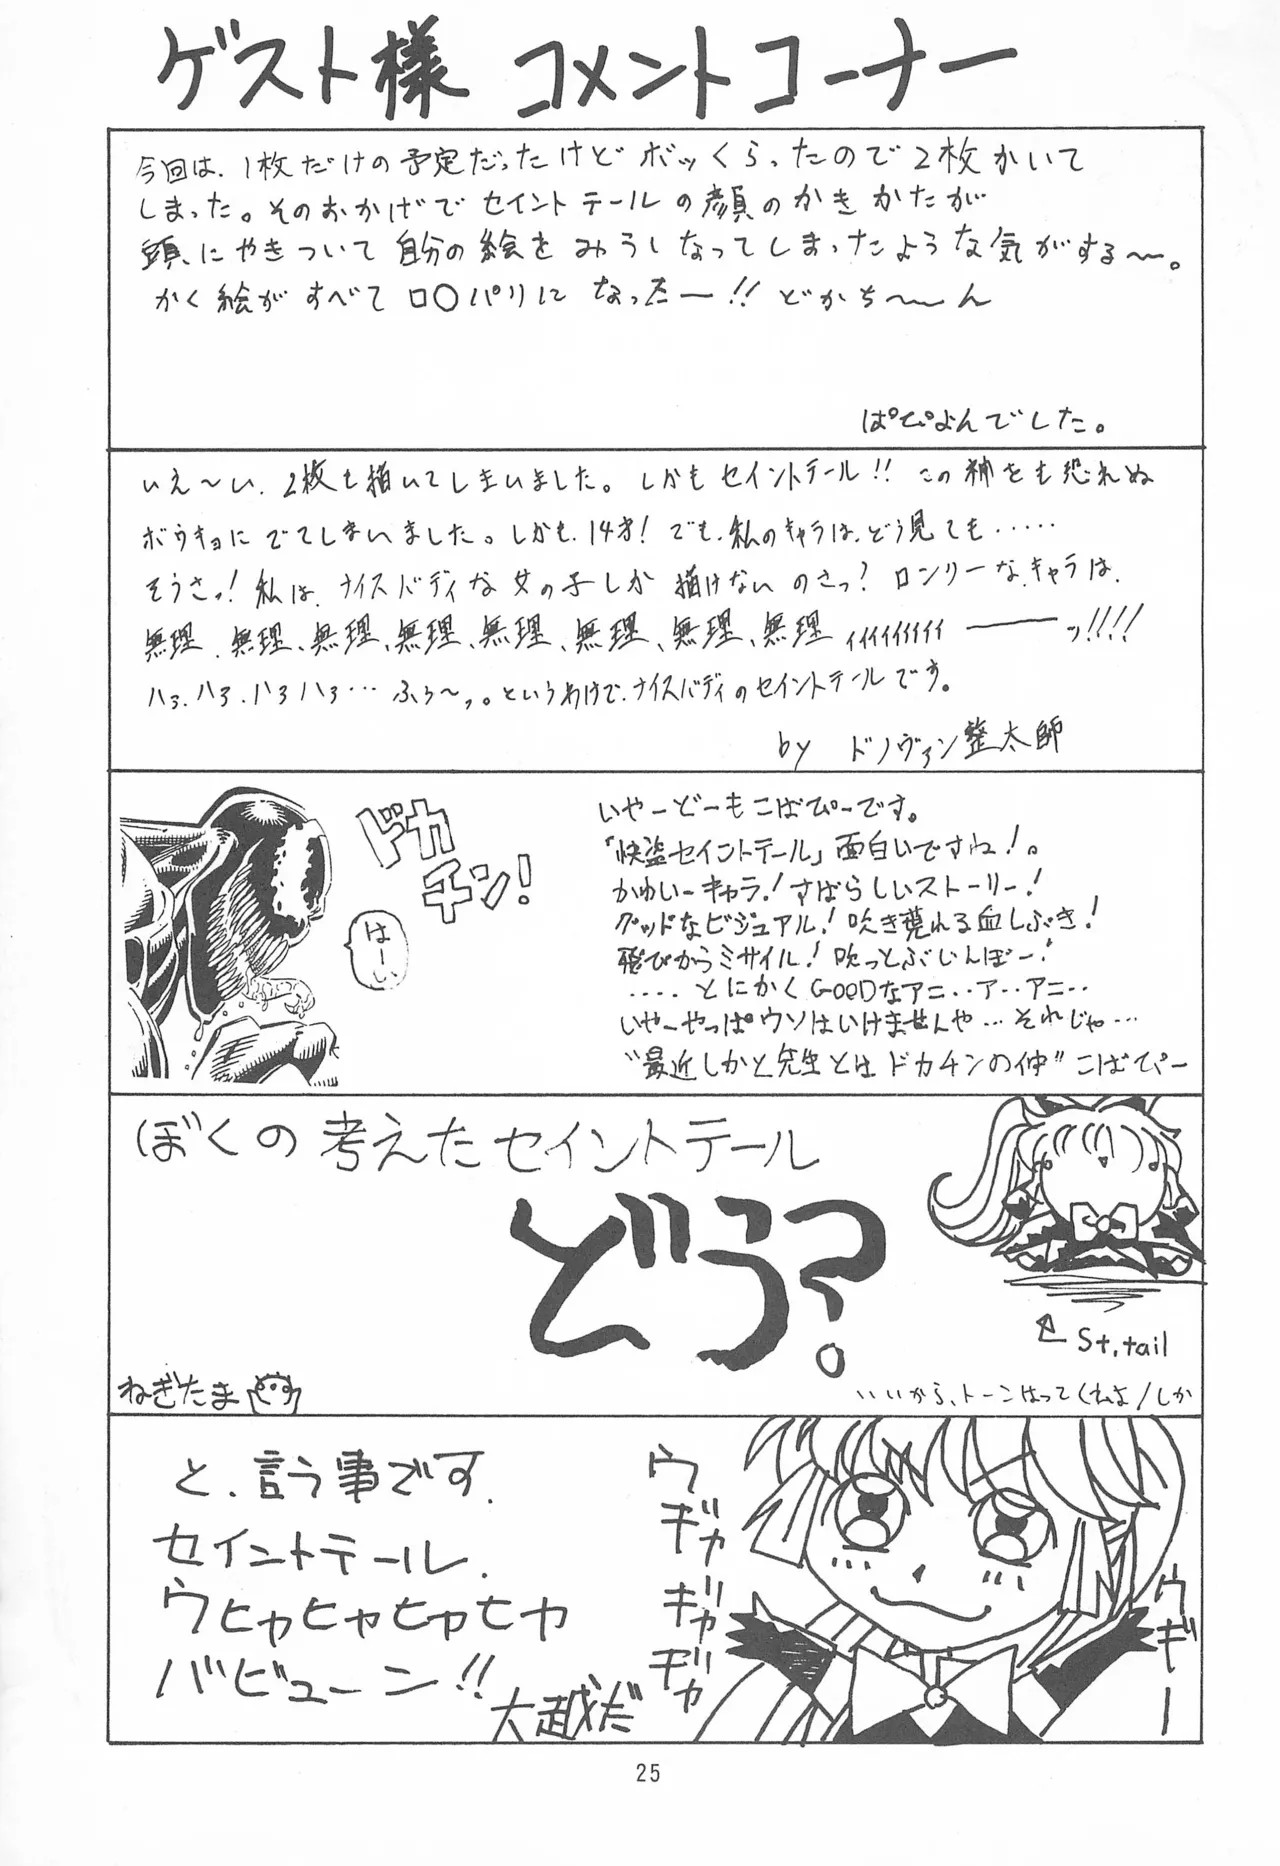 ゲスト様 コメントコーナー
今回は、1枚だけの予定だったけどボッくらったので2枚かいて
しまった。そのおかげでセイントテールの顔のかきかたが
頭にやきついて自分の絵をみうしなってしまったような気がする〜。
かく絵がすべてロ○パリになったー!!どかち〜ん
ぱぴよんでした。
いえ〜い、2枚も描いてしまいました。しかもセイントテール!!この神をも恐れぬ
ボウキョにでてしまいました。しかも、14才!でも、私のキャラは、どう見ても……
そうさっ!私は、ナイスバディな女の子しか描けないのさっ?ロンリーな、キャラは、
無理、無理、無理、無理、無理、無理、無理、無理ィィィィィィィィ──ッ!!!!
ハァ、ハァ、ハァハァ…ふぅ〜っ。というわけで、ナイスバディのセイントテールです。
by ドノヴァン整太師
ドカチン!
はーい
いやーどーもこばぴーです。
「快盗セイントテール」面白いですね!。
かわいーキャラ!すばらしいストーリー!
グッドなビジュアル!吹き荒れる血しぶき!
飛びかうミサイル!吹っとぶじんぼー!
....とにかくGOODなアニ‥ア‥アニ‥
いやーやっぱウソはいけませんや…それじゃ…
"最近しかと先生とはドカチンの仲"こばぴー
ぼくの考えたセイントテール
どう?
St,tail
ねぎたま
いいから、トーンはってくれよ/しか
と、言う事です。
セイントテール、
ウヒャヒャヒャヒャ
バビューン!!
大越だ
ウギャギャギャ
ウギー
25